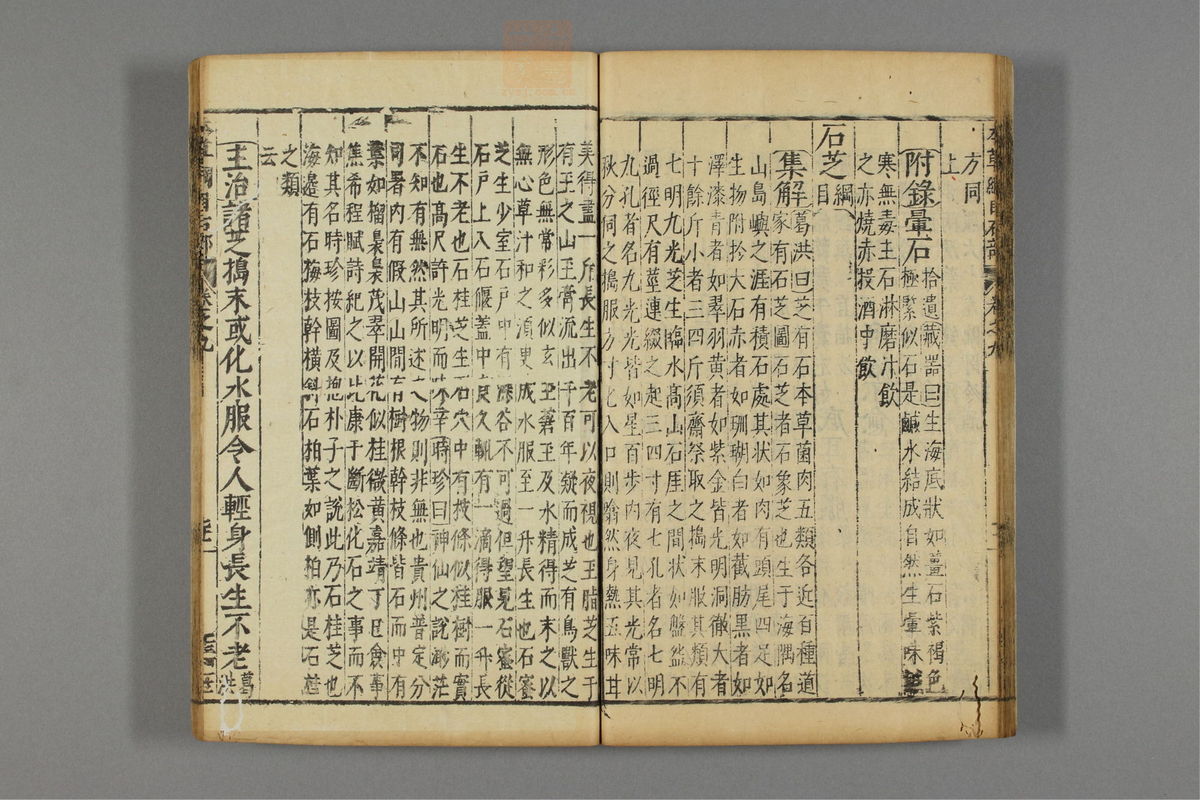 本草綱目石部 卷之九
方同
上
附錄暈石 拾遺藏器曰生海底狀如薑石紫褐色
極緊似石是鹹水結成自然生暈味鹹
寒無毒主石淋磨汁飲
之亦燒赤投酒中飲
石芝 綱目
集解 葛洪曰芝有石木草菌肉五類各近百種道
家有石芝圖石芝者石象芝也生于海隅名
山島嶼之涯有積石處其狀如肉有頭尾四足如
生物附於大石赤者如珊瑚白者如截肪黑者如
澤漆青者如翠羽黃者如紫金皆光明洞徹大者
十餘斤小者三四斤須齋祭取之搗末服其類有
七明九光芝生臨水高山石崖之間狀如盤盌不
過徑尺有莖連綴之起三四寸有七孔者名七明
九孔者名九光光皆如星百步內夜見其光常以
秋分伺之搗服方寸匕入口則翕然身熱五味甘
美得盡一斤長生不老可以夜視也玉脂芝生于
有玉之山玉膏流出千百年凝而成芝有鳥獸之
形色無常彩多似玄玉蒼玉及水精得而末之以
無心草汁和之須臾成水服至一升長生也石蜜
芝生少室石戶中有深谷不可過但望見石蜜從
石戶上入石偃蓋中良久輒有一滴得服一升長
生不老也石桂芝生石穴中有枝條似桂樹而實
石也高尺許光明而味辛時珍曰神仙之說渺茫
不知有無然其所述之物則非無也貴州普定分
司署內有假山山間有樹根幹枝條皆石而中有
葉如榴裊裊茂翠開花似桂微黃嘉靖丁巳僉事
焦希程賦詩紀之以比康干斷松化石之事而不
知其名時珍按圖及抱朴子之說此乃石桂芝也
海邊有石梅枝幹橫斜石柏葉如側柏亦是石桂
之類
云
主治諸芝搗末或化水服令人輕身長生不老 葛洪
本草綱目石部 卷之九